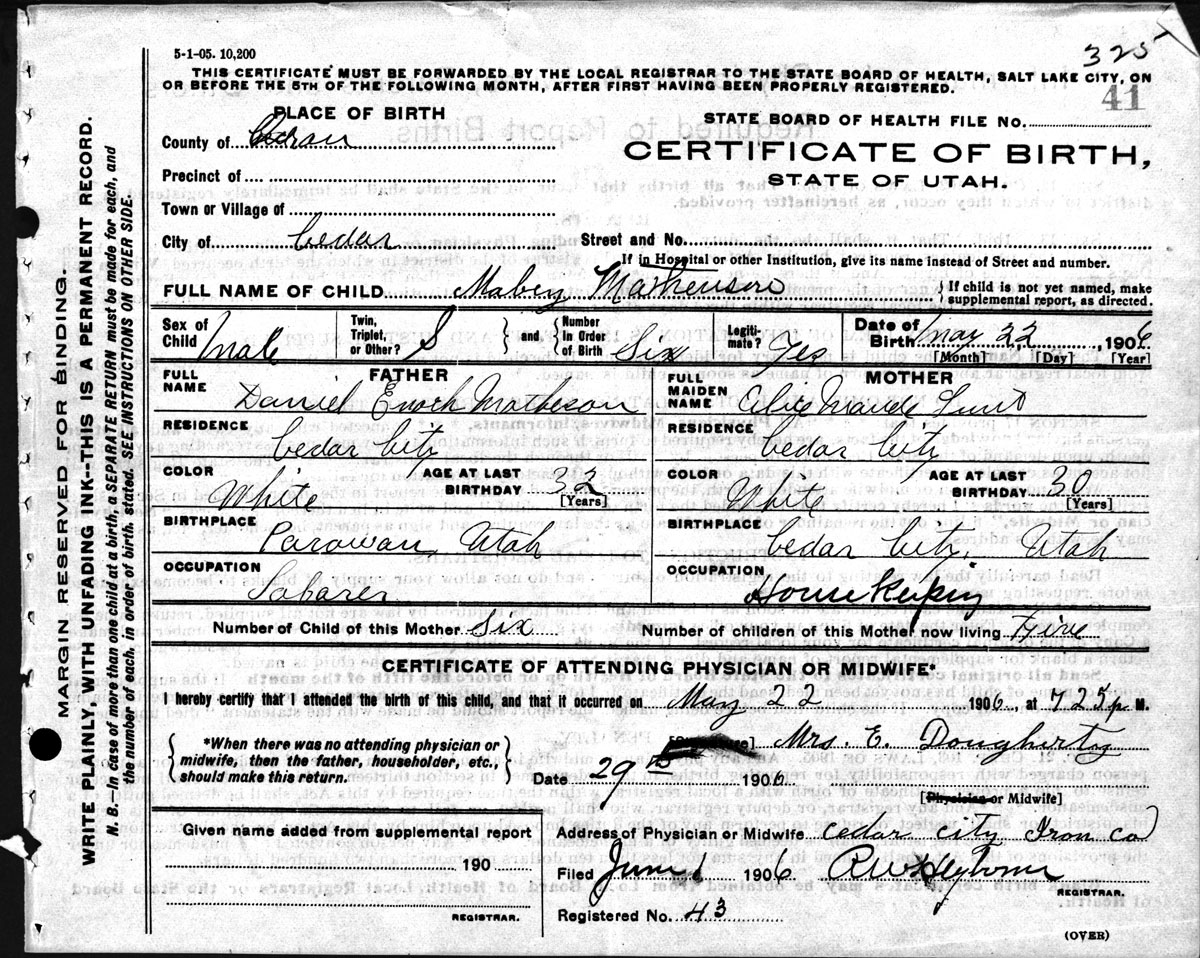 5-1-05. 10,200
325
THIS CERTIFICATE MUST BE FORWARDED BY THE LOCAL REGISTRAR TO THE STATE BOARD OF HEALTH, SALT LAKE CITY, ON
OR BEFORE THE 5TH OF THE FOLLOWING MONTH, AFTER FIRST HAVING BEEN PROPERLY REGISTERED.
41
PLACE OF BIRTH
STATE BOARD OF HEALTH FILE No.
County of
CERTIFICATE OF BIRTH,
Precinct of
STATE OF UTAH.
Town or Village of
City of Cedar Street and No.
If in Hospital or other Institution, give its name instead of Street and number.
FULL NAME OF CHILD Mabery Matheuson { If child is not yet named, make
supplemental report, as directed.
Sex of Child Male Twin, Triplet, or Other? S } and { Number In Order of Birth Six Legiti-mate? Yes Date of Birth May 22, 1906
[Month] [Day] [Year]
FATHER
FULL NAME Daniel Enoch Matheson
RESIDENCE Cedar City
COLOR White AGE AT LAST BIRTHDAY 32 [Years]
BIRTHPLACE Parowan, Utah
OCCUPATION Labarer
MOTHER
FULL MAIDEN NAME Alice Maude Lunt
RESIDENCE Cedar City
COLOR White AGE AT LAST BIRTHDAY 30 [Years]
BIRTHPLACE Cedar City, Utah
OCCUPATION House Keeping
Number of Child of this Mother Six Number of children of this Mother now living Five
CERTIFICATE OF ATTENDING PHYSICIAN OR MIDWIFE*
I hereby certify that I attended the birth of this child, and that it occurred on May 22 1906, at 7 25 p M.
{ *When there was no attending physician or
midwife, then the father, householder, etc.,
should make this return. }
Mrs. E. Doughirty
Date 29 1906.
[Physician or Midwife]
Given name added from supplemental report
190
REGISTRAR.
Address of Physician or Midwife cedar city Iron co
Filed June 1 1906
REGISTRAR.
Registered No. 43
(OVER)
MARGIN RESERVED FOR BINDING.
WRITE PLAINLY, WITH UNFADING INK--THIS IS A PERMANENT RECORD.
N. B.—In case of more than one child at a birth, a SEPARATE RETURN must be made for each, and
the number of each, in order of birth, stated. SEE INSTRUCTIONS ON OTHER SIDE.